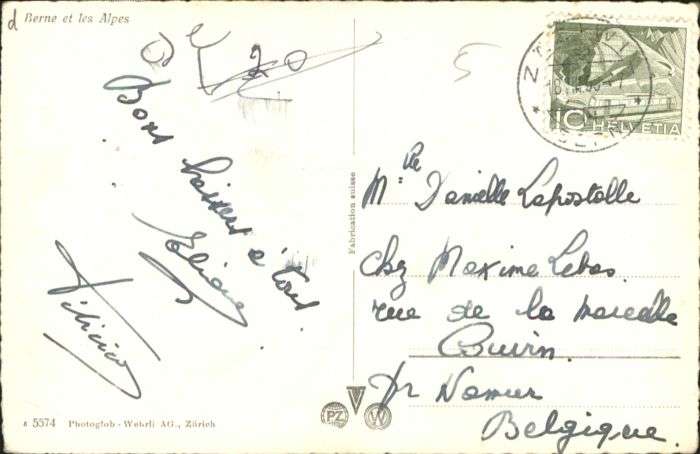 d
Berne et les Alpes
20
5
Bons baisers à tous
Eliane
Félicien
Fabrication suisse
HELVETIA
10
Mlle Danielle Lapostolle
chez Maxime Lebas
rue de la marcelle
Couvin.
Pr Namur
Belgique.
PZ W
a 5574 Photoglob - Wehrli AG., Zürich